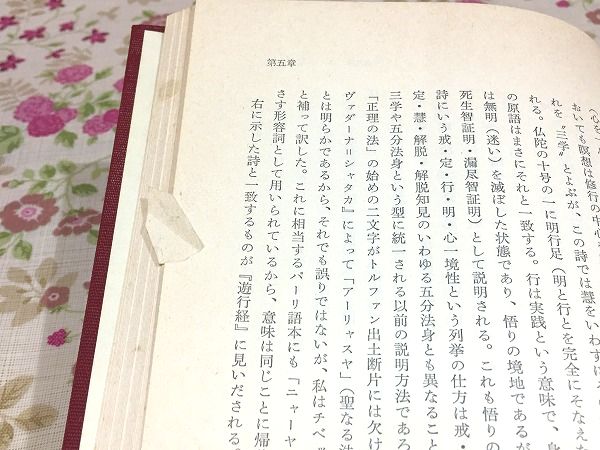 第五章
（心を
おいても瞑想は修行の中心
れを〝三学〟とよぶが、この詩では慧をいわず
る。仏陀の十号の一に明行足（明と行とを完全にそなえた
の原語はまさにそれと一致する。行は実践という意味で、身
は無明（迷い）を滅ぼした状態であり、悟りの境地であるが
死生智証明・漏尽智証明）として説明される。これも悟りの
詩にいう戒・定・行・明・心一境性という列挙の仕方は戒・
定・慧・解脱・解脱知見のいわゆる五分法身とも異なること
三学や五分法身という型に統一される以前の説明方法であろ
「正理の法」の始めの二文字がトルファン出土断片には欠け
ヴァダーナ＝シャタカ』によって「アーリャスヤ」（聖なる法
とは明らかであるから、それでも誤りではないが、私はチベッ
と補って訳した。これに相当するパーリ語本にも「ニャーヤ
さす形容詞として用いられているから、意味は同じことに帰
右に示した詩と一致するものが『遊行経』に見いだされる。